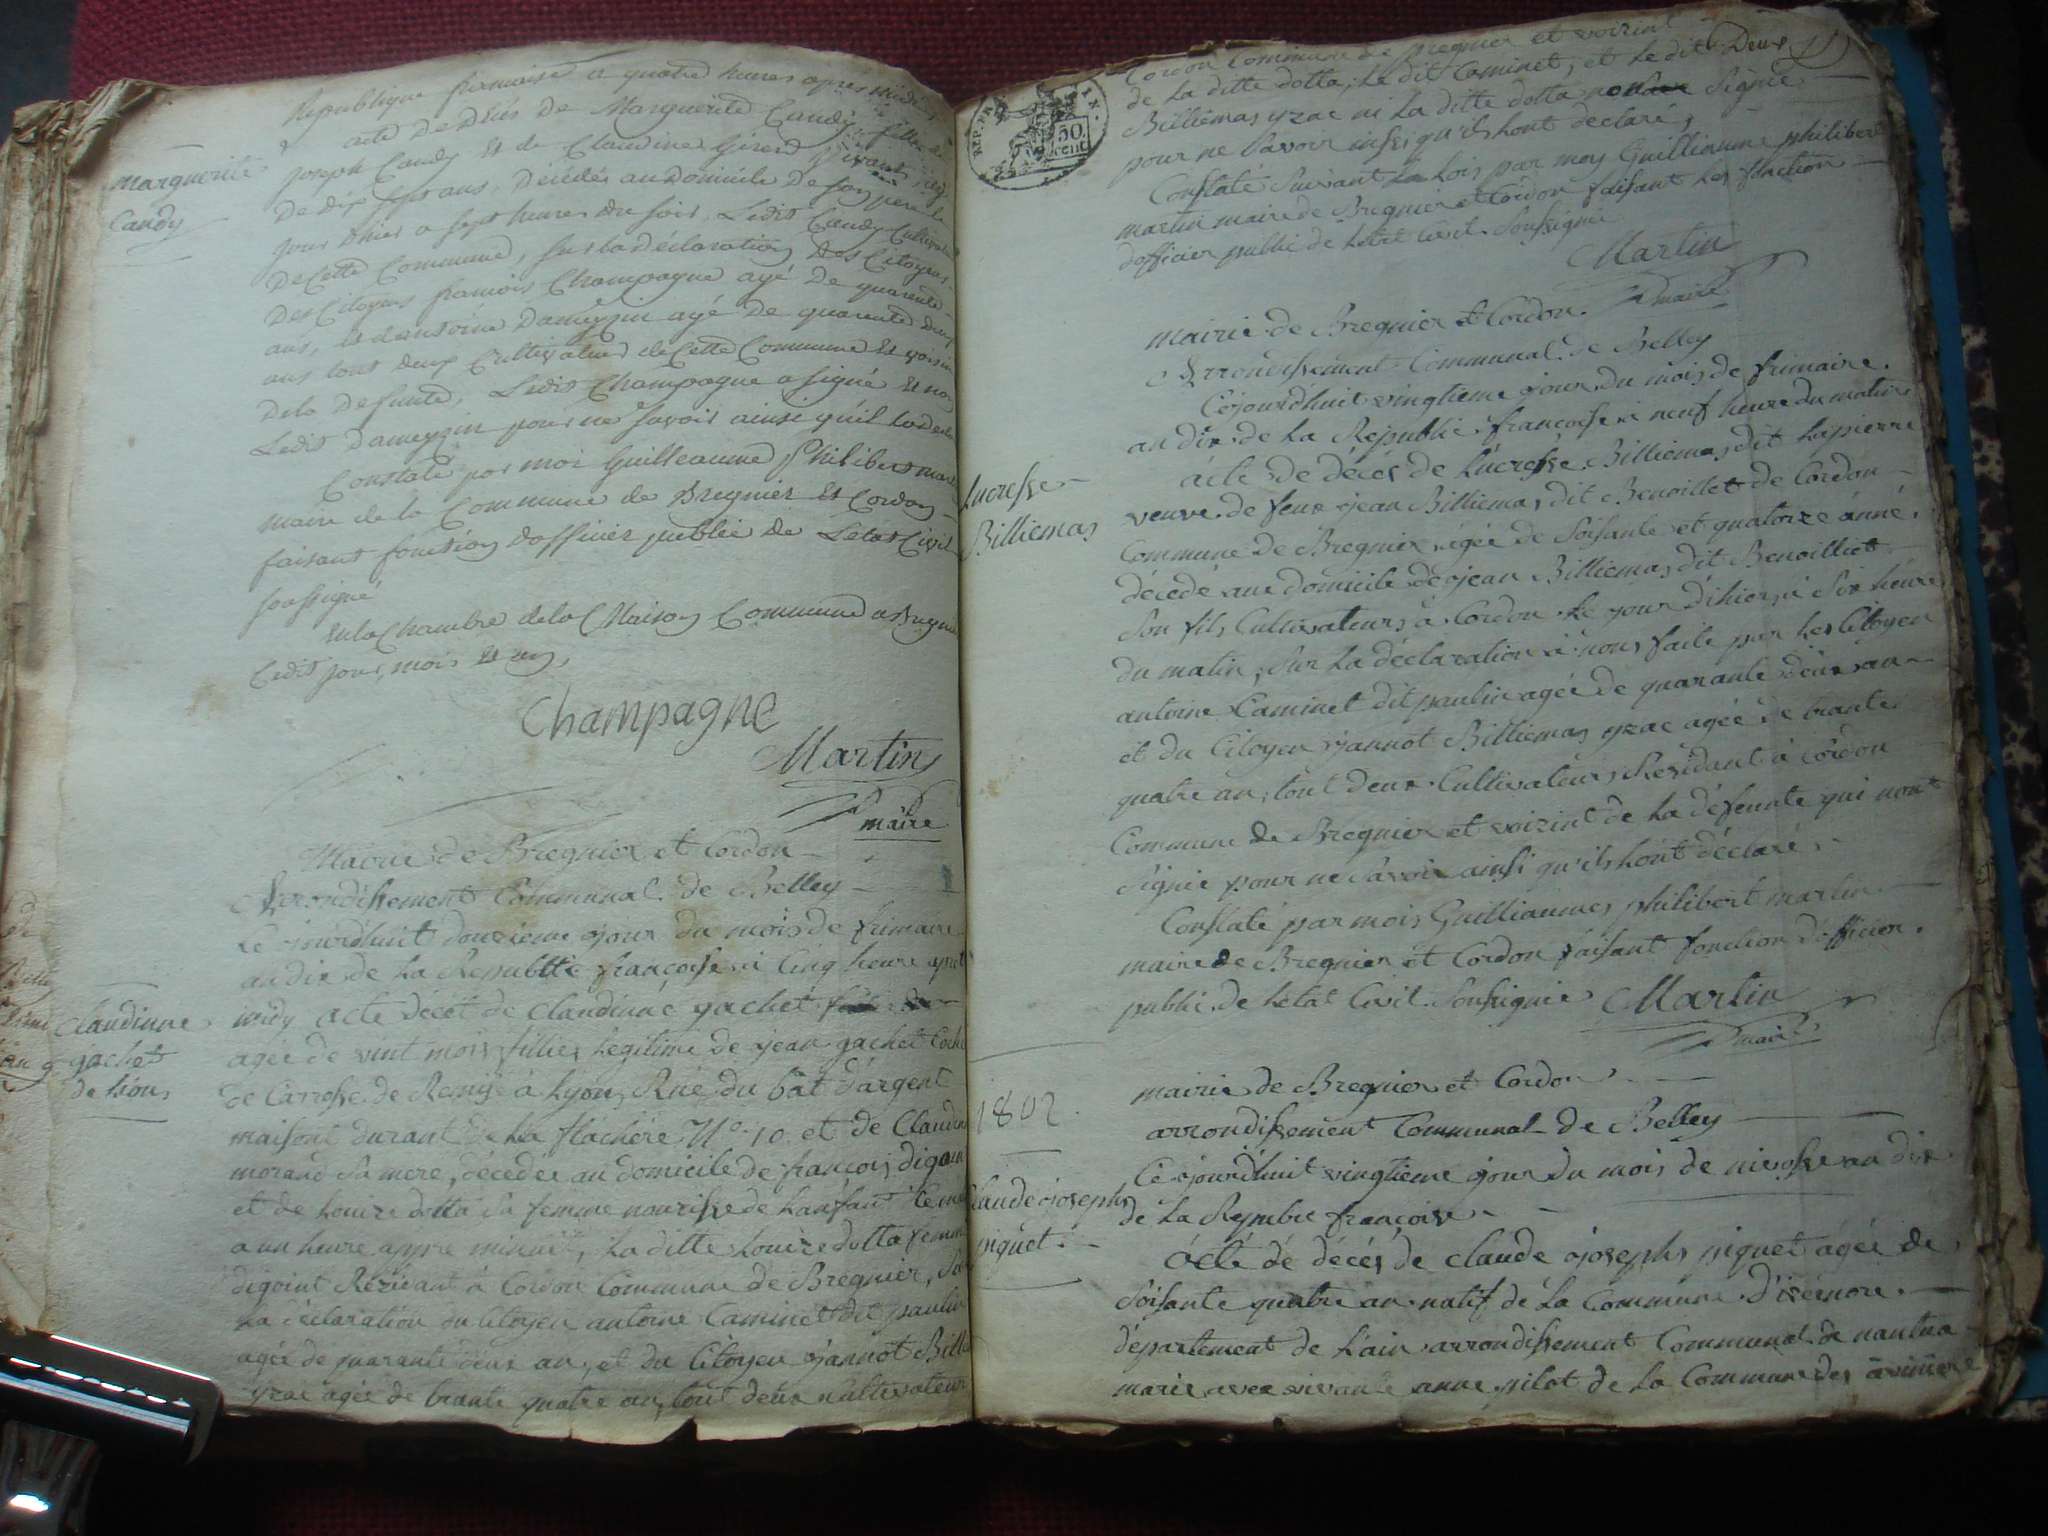 Republique francaise a quatre heures apres midi,
acte de décès de Marguerite Candy fille de
Marguerite
Candy
joseph Candy et de Claudine Gérard vivants, agé
de dix sept ans, décédés au domicile de son pere le
jour d'hier a sept heures du soir, Ledit Candy Cultivateur
de Cette Commune, sur la déclaration Des Citoyens
Des Citoyens francois Champagne agé de quarente
ans, et d'antoine Dameyzin agé de quarente deux
ans tous deux Cultivateurs de Cette Commune et voisin
de la defunte, Ledit Champagne a signé et non
Ledit Dameyzin pour ne savoir ainsi qu'il la declaré
Constaté par moi Guilleaume Philibert martin
maire de la Commune de Bregnier et Cordon
faisant fonction d'officier public de L'état Civil
soussigné
en la Chambre de la Maison Commune a Bregnier
Ledit jour, mois et an,
Champagne
Martin
maire
Mairie de Bregnier et Cordon
Arrondissement Communal de Belley
Ce ojourdhuit douzieme ojour du mois de frimaire
an dix de la Republic françoise à Cinq heure apret
Claudinne
gachet
de lion
midy acte décèt de Claudinne gachet
agée de vint mois fillies legitime de ojean gachet Coché
de Carrosse de Remise à Lyon, Rüe du bât d'argent
maisont durant de La flachere N° 10 et de Claudine
morand sa mere, décédée au domicile de françois digoint
et de Louize dotta sa femme nourisse de Lanfant
a un heure appre minuit, La ditte Louize dotta femme
digoint Rézidant à Cordon Commune de Bregnier, Sur
La déclaration du Citoyen antoine Caminet dit paulin
agée de quarante deux an, et du Citoyen ojannot Billiemas
yzac agée de trante quatre an, tout deux Cultivateur
REP. FRA.
50
cent.
Cordon Commune de Bregnier et voizint
de La ditte dotta, Le dit Caminet, et Le dit
Billiemas yzac ni La ditte dotta Signée
pour ne Savoir insi qu'ils hont déclaré,
Constaté Suivant La Lois par moy Guilliaume philibert
martin maire de Bregnier et Cordon faisant Les fonction
d'officier public de Létat Civil Soussigné
Martin
maire
mairie de Bregnier et Cordon.
Arrondissement Communal de Belley
Cejourdhuit vingtieme ojour du mois de frimaire.
an dix de La Republic françoise à neuf heure du matin
Lucresse
Billiemas
acte de décès de Lucresse Billiemas dit Lapierre
veuve de feux ojean Billiemas dit Benoillet de Cordon
Commune de Bregnier agée de Soisante et quatorze anné.
décédé au domicile de ojean Billiemas dit Benoilliet
Son fils Cultivateurs à Cordon Le your d'hier à Six héure
du matin, Sur La déclaration à nous faite par Les Citoyen
antoine Caminet dit paulin agée de quarante deux an
et du Citoyen ojannot Billiemas yzac agée de trante
quatre an, tout deux Cultivateurs Résidant à Cordon
Commune de Bregnier et voizint de La défeunte qui n'ont
Signie pour ne Savoir ainsi qu'ils hont déclaré.
Constaté par mois Guilliaumes philibert martin
maire de Bregnier et Cordon faisant fonction d'officier.
public de Létat Civil Soussignie
Martin
maire
1802
mairie de Bregnier et Cordon
arrondissement Communal de Belley
Ce ojourdhuit vingtieme ojour du mois de nivosse an dix
de La Repubic françoise
Claude ojosephs
niquet.
acté dé décés de Claude ojosephs niquet agée de
Soisante quatre an natif de La Commune d'izérnore.
département de Lain arrondissement Communal de nantua
marié avec vivante anne pilot de La Commune des avinière